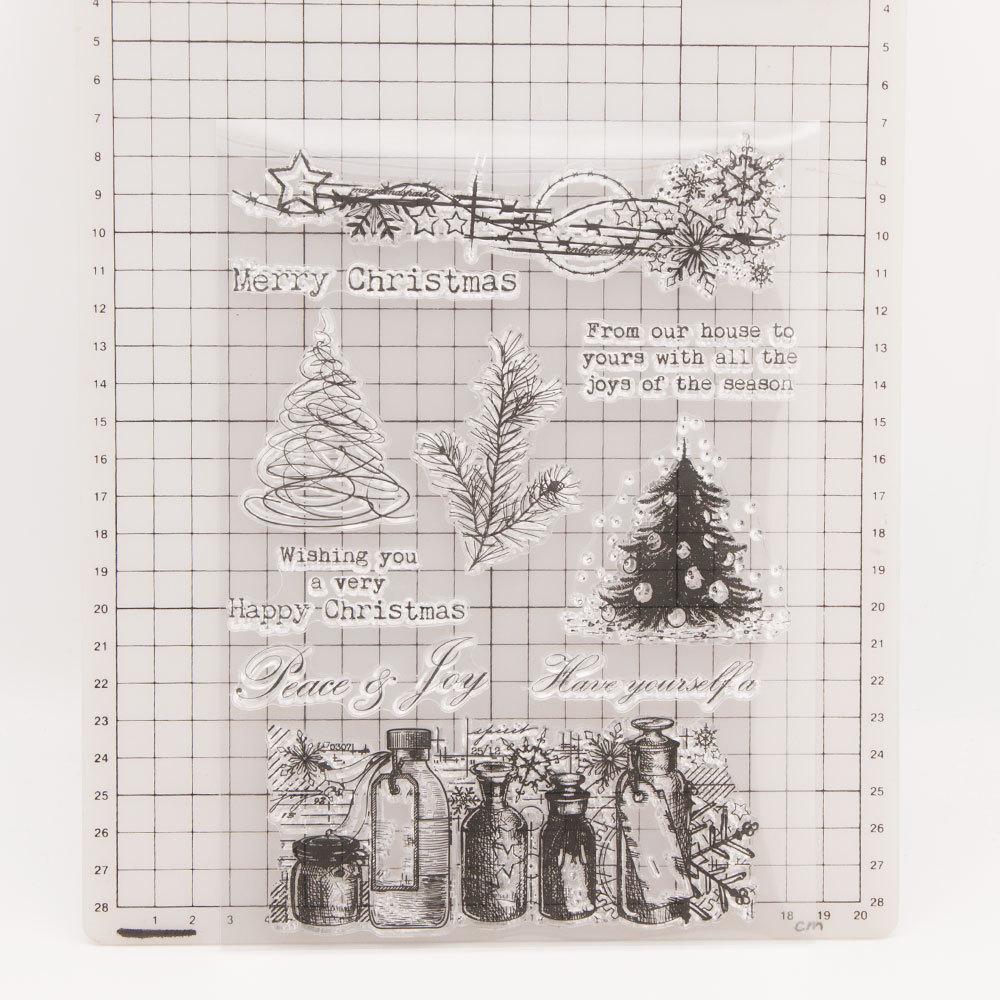 4 4
5 5
6 6
7 7
8 8
9 9
10 10
11 11
12 12
13 13
14 14
15 15
16 16
17 17
18 18
19 19
20 20
21 21
22 22
23 23
24 24
25 25
26 26
27 27
28 28
Merry Christmas
From our house to
yours with all the
joys of the season
Wishing you
a very
Happy Christmas
Peace & Joy
Have yourself a
spirit
25/12
1 2 3 18 19 20
cm